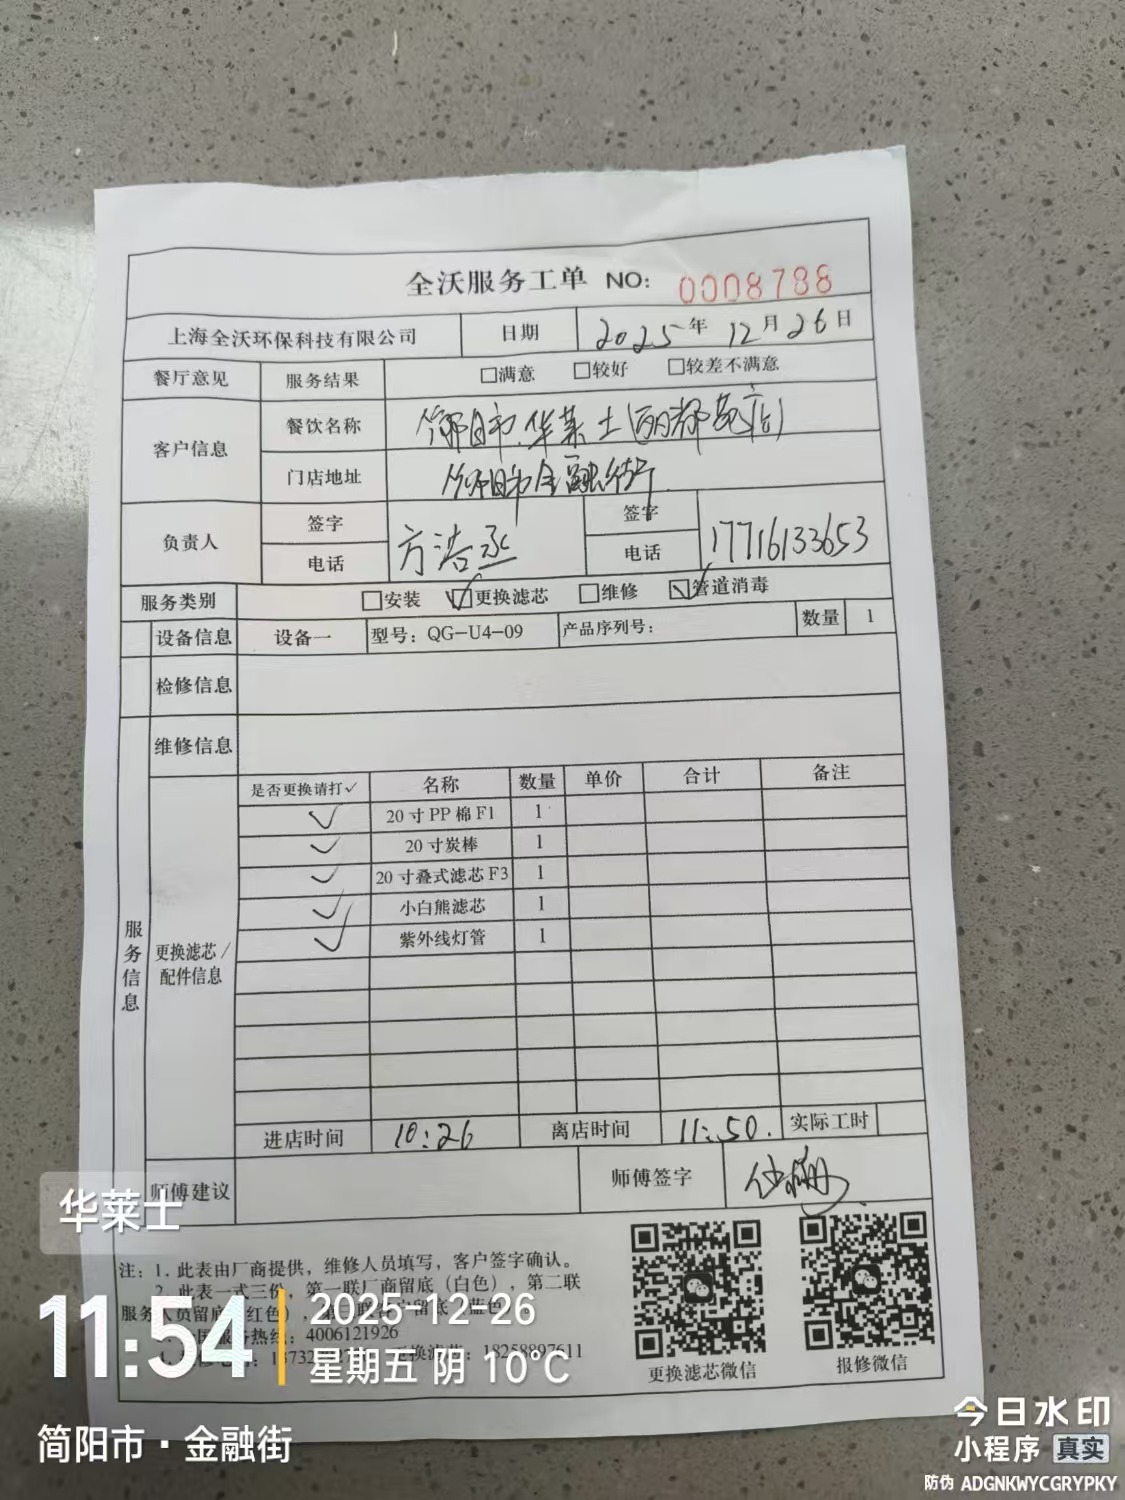 全沃服务工单 NO: 0008788
上海全沃环保科技有限公司 日期 2025年 12月 26日
餐厅意见 服务结果 □满意 □较好 □较差不满意
客户信息 餐饮名称 简阳市华莱士(丽都苑店)
门店地址 简阳市金融街
负责人 签字 方浩丞 签字
电话 电话 17716133653
服务类别 □安装 ☑更换滤芯 □维修 ☑管道消毒
设备信息 设备一 型号: QG-U4-09 产品序列号: 数量 1
检修信息
维修信息
服务信息
更换滤芯/配件信息
是否更换请打✓ 名称 数量 单价 合计 备注
✓ 20寸PP棉F1 1
✓ 20寸炭棒 1
✓ 20寸叠式滤芯F3 1
✓ 小白熊滤芯 1
✓ 紫外线灯管 1
进店时间 10:26 离店时间 11:50. 实际工时
师傅建议 师傅签字
注: 1. 此表由厂商提供，维修人员填写，客户签字确认。
2. 此表一式三份，第一联厂商留底（白色），第二联
服务人员留底
热线: 4006121926
18258897611
更换滤芯微信 报修微信
华莱士
11:54 2025-12-26
星期五 阴 10°C
简阳市·金融街
今日水印
小程序 真实
防伪 ADGNKWYCGRYPKY